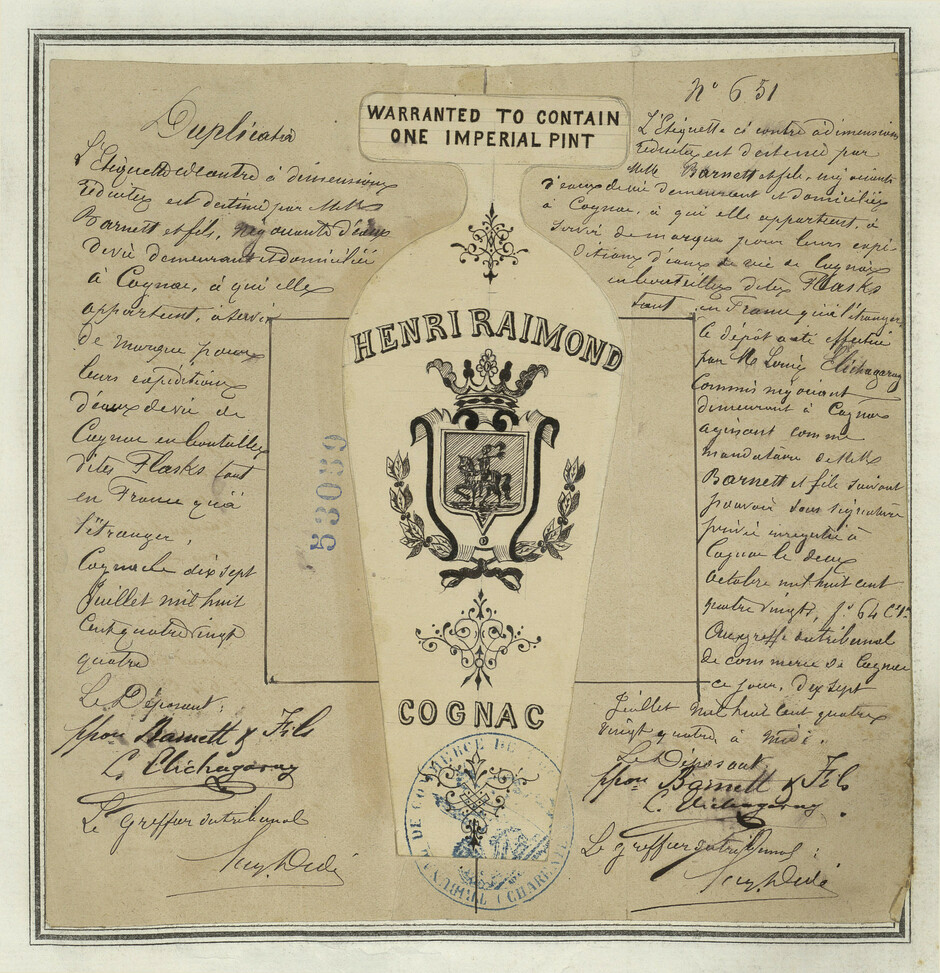 Duplicata
L'Etiquette ci contre à dimensions
réduites est destinée par MMrs
Barnett et fils, négociants d'eaux
de vie demeurant et domiciliés
à Cognac, à qui elle
appartient, à servir
de marque pour
leurs expéditions
d'eaux de vie de
Cognac en bouteilles
dites Flasks tant
en France qu'à
l'étranger.
Cognac le dix sept
Juillet mil huit
cent quatre vingt
quatre
Le Déposant:
ppon Barnett & Fils
L. Elichagaray
Le greffier du tribunal
WARRANTED TO CONTAIN
ONE IMPERIAL PINT
HENRI RAIMOND
COGNAC
53089
DE COMMERCE DE
CHARENTE
N° 651
L'Etiquette ci contre à dimensions
réduites est destinée par
MMrs Barnett et fils, négociants
d'eaux de vie demeurant et domiciliés
à Cognac, à qui elle appartient, à
servir de marque pour leurs expé-
ditions d'eaux de vie de Cognac
en bouteilles dites Flasks
tant en France qu'à l'étranger
le dépôt a été effectué
par Mr Louis Elichagaray
Commis négociant
demeurant à Cognac
agissant comme
mandataire de MMrs
Barnett et fils suivant
pouvoir sous signature
privée enregistré à
Cognac le deux
Octobre mil huit cent
quatre vingt, f° 64 Cse
Au greffe du tribunal
de commerce de Cognac
ce jour, dix sept
Juillet mil huit cent quatre
vingt quatre à midi.
Le Déposant
ppon Barnett & Fils
L. Elichagaray
Le greffier du tribunal: